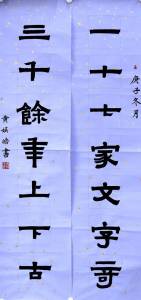 庚子冬月
一十七家文字奇
三千餘年上下古
黄炳皓書